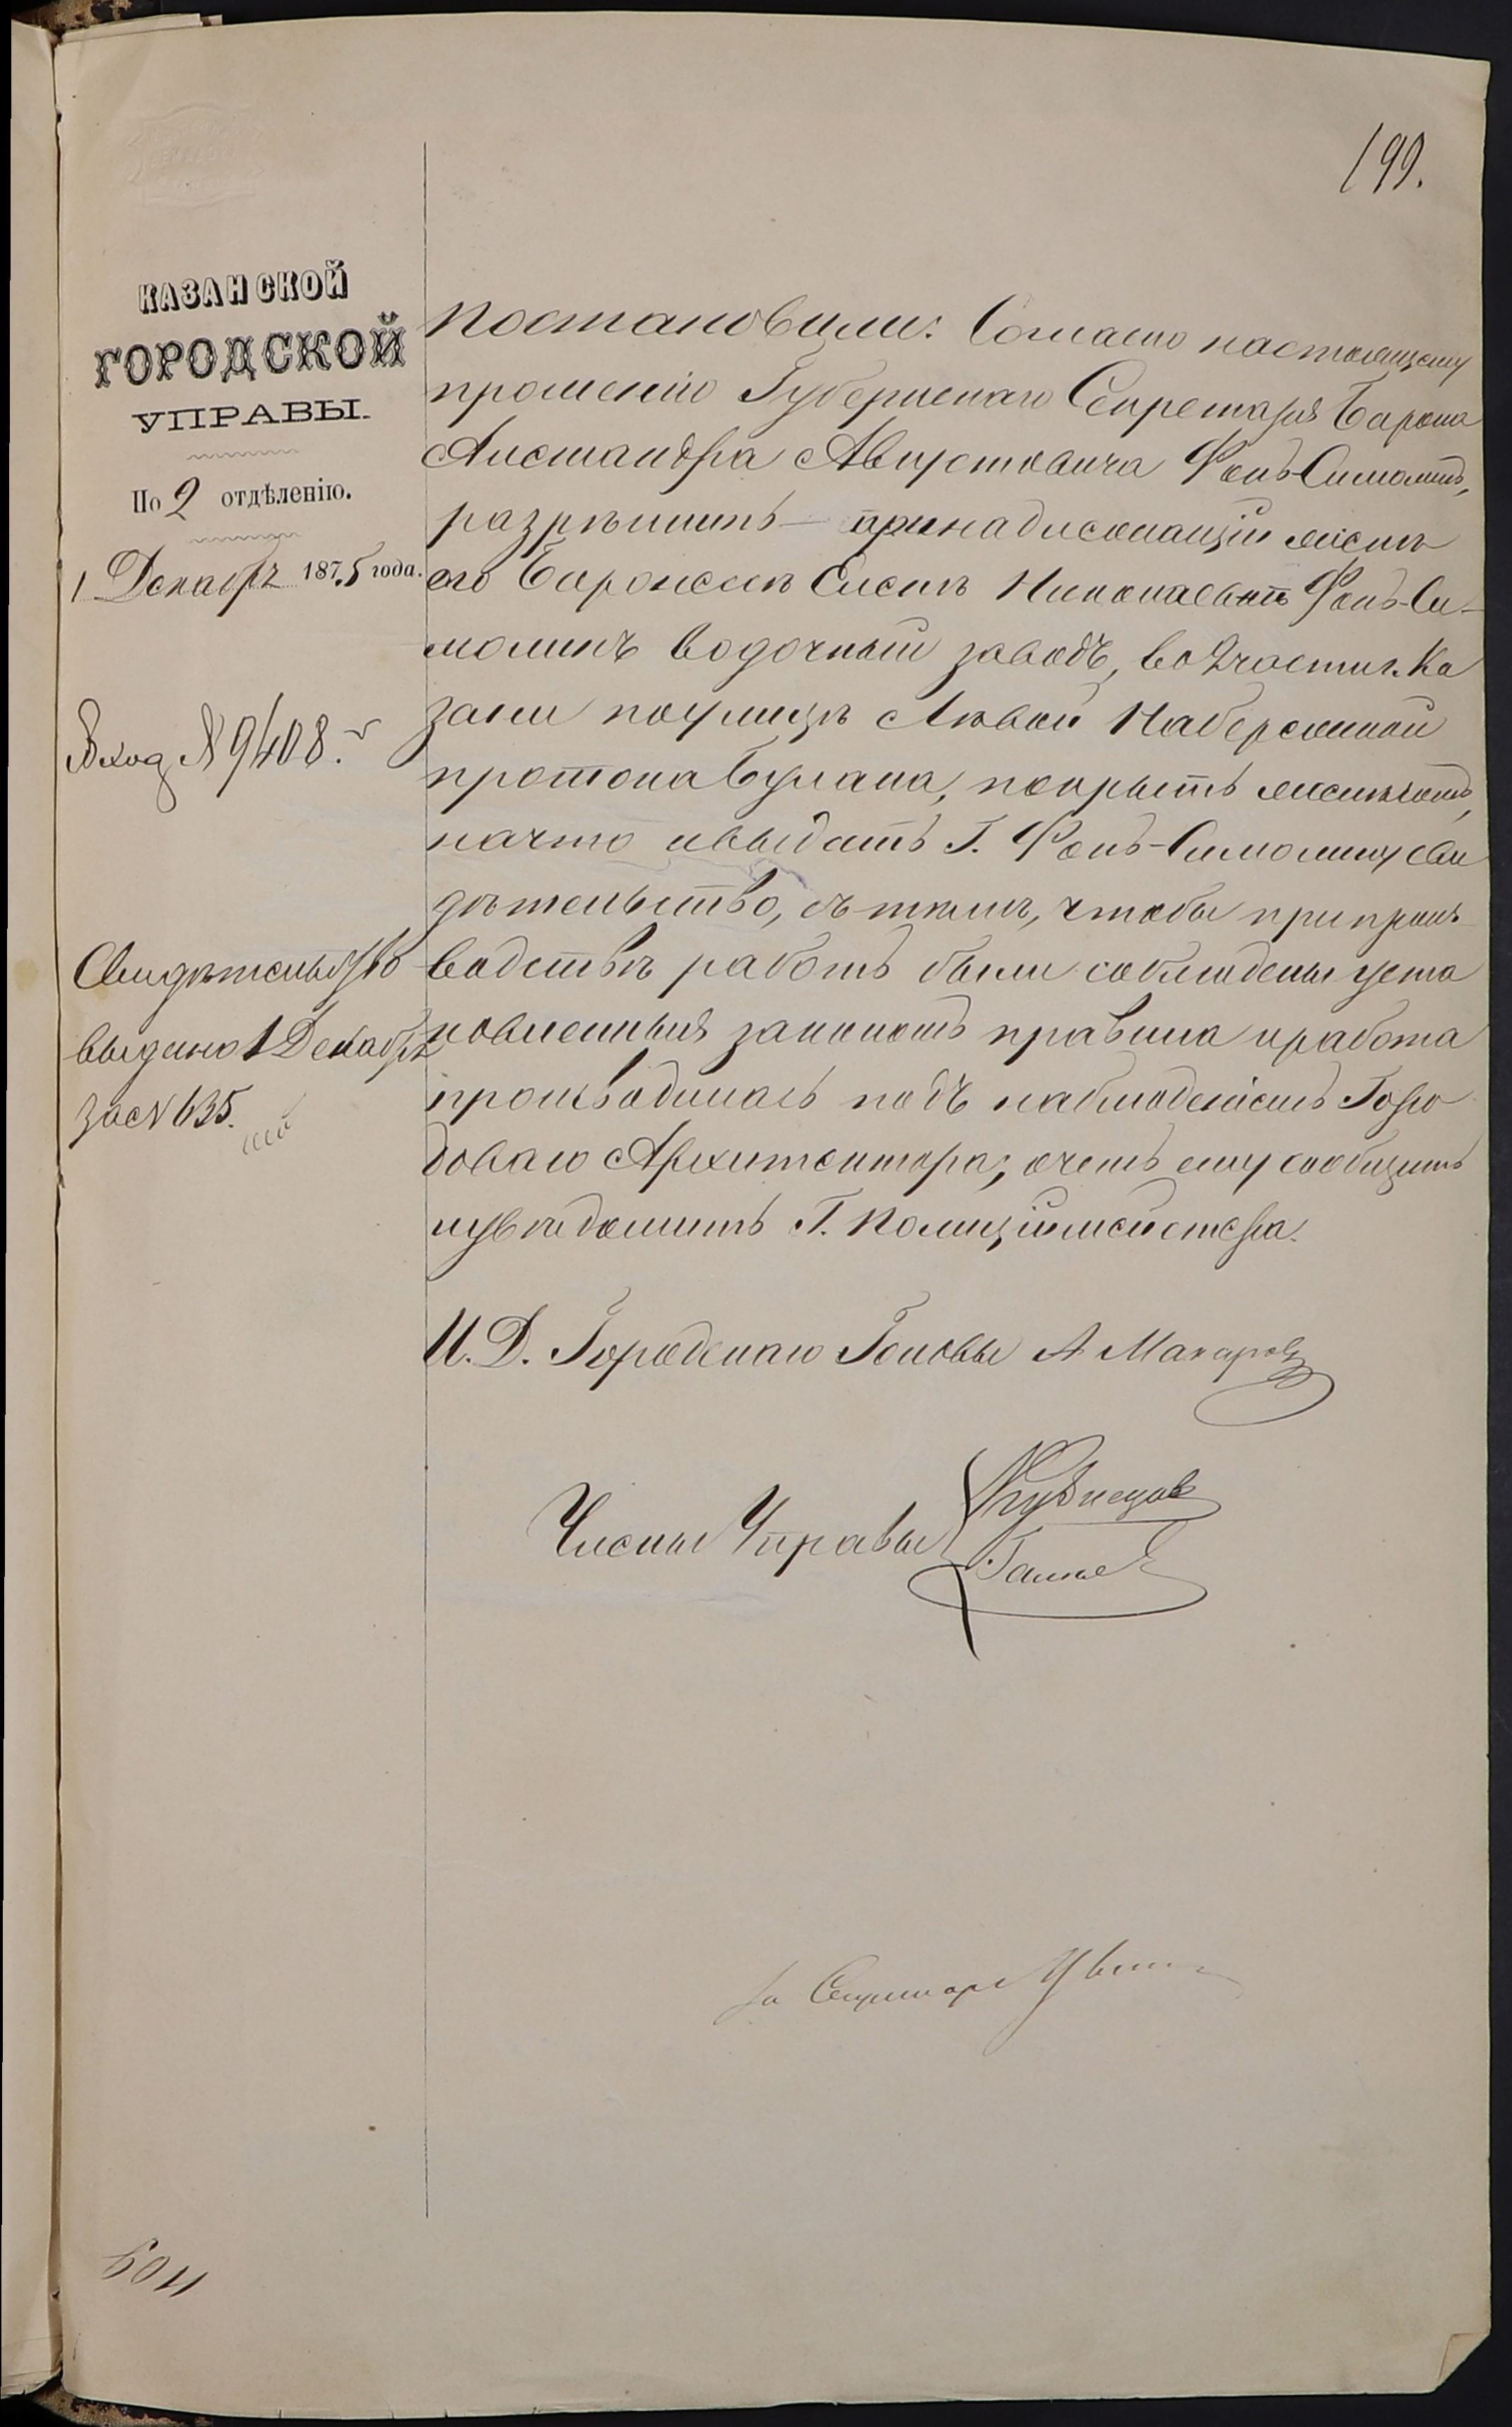 199.
КАЗАНСКОЙ
ГОРОДСКОЙ
УПРАВЫ.
По 2 отдѣленію.
1 Декабря 1875 года.
Вход №9408.
Свидѣтельство
выдано 1 Декабря
за № 635.
постановили: Согласно настоящему
прошенію Губернскаго Секретаря Барона
Александра Августовича Фонъ-Симолинъ,
разрѣшить принадлежащій женѣ
его Баронессѣ Еленѣ Николаевнѣ Фонъ-Си-
молинъ водочный заводъ, во 2 части г. Ка
зани по улицѣ Лѣвой Набережной
протока Булака, покрыть желѣзомъ,
на что и выдать Г. Фонъ-Симолину сви
дѣтельство, съ тѣмъ, чтобы при произ
водствѣ работъ были соблюдены уста
новленныя закономъ правила и работа
производилась подъ наблюденіемъ Горо
доваго Архитектора; о чемъ ему сообщить
и увѣдомить Г. Полиціймейстера.
И. Д. Городскаго Головы А Макаров
Члены Управы Кузнецов
Галле
За Секретаря